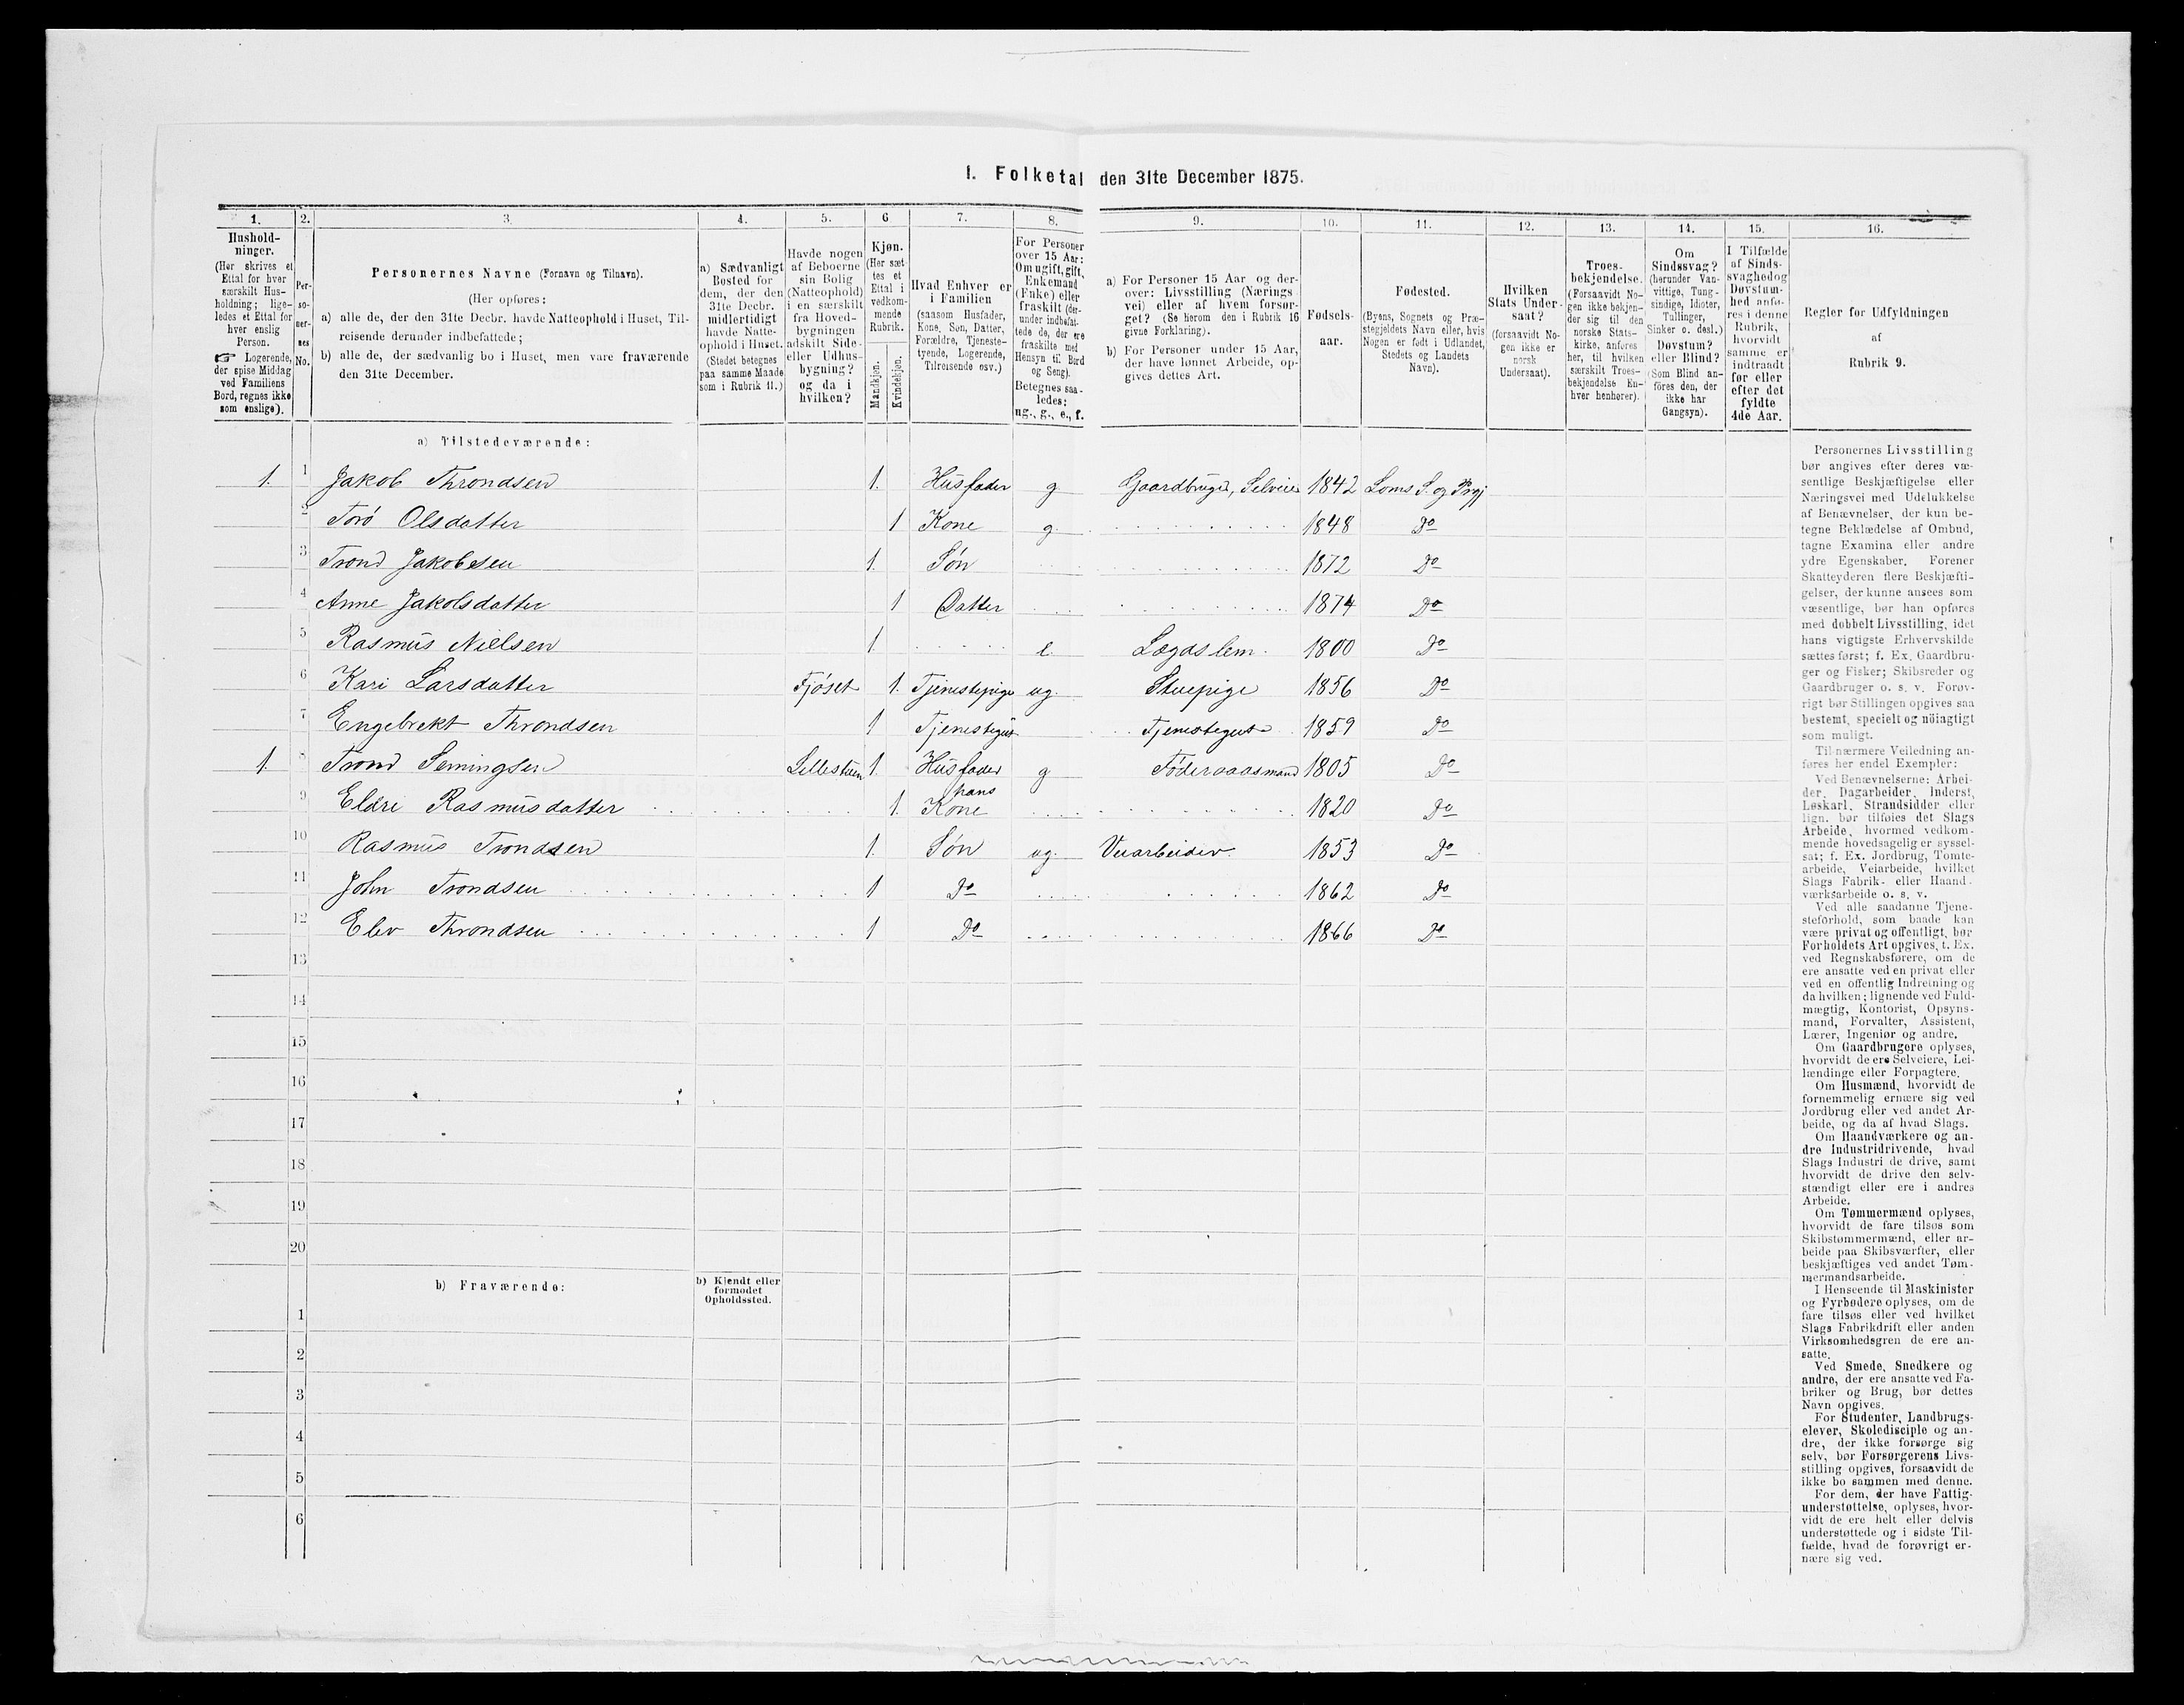 I. Folketal den 31te December 1875.
1. 2. 3. 4. 5. 6 7. 8. 9. 10. 11. 12. 13. 14. 15. 16.
Hushold-
ninger.
(Her skrives et
Ettal for hver
særskilt Hus-
holdning; lige-
ledes et Ettal for
hver enslig
Person.
☞ Logerende,
der spise Middag
ved Familiens
Bord, regnes ikke
som enslige).
Per-
so-
ner-
nes
No.
Personernes Navne (Fornavn og Tilnavn).
(Her opføres:
a) alle de, der den 31te Decbr. havde Natteophold i Huset, Til-
reisende derunder indbefattede;
b) alle de, der sædvanlig bo i Huset, men vare fraværende
den 31te December.
a) Sædvanligt
Bosted for
dem, der den
31te Decbr.
midlertidigt
havde Natte-
ophold i Huset.
(Stedet betegnes
paa samme Maade
som i Rubrik 11.)
Havde nogen
af Beboerne
sin Bolig
(Natteophold)
i en særskilt
fra Hoved-
bygningen
adskilt Side-
eller Udhus-
bygning?
og da i
hvilken?
Kjøn.
(Her sæt-
tes et
Ettal i
vedkom-
mende
Rubrik.
Mandkjøn.
Kvindekjøn.
Hvad Enhver er
i Familien
(saasom Husfader,
Kone, Søn, Datter,
Forældre, Tjeneste-
tyende, Logerende,
Tilreisende osv.)
For Personer
over 15 Aar:
Om ugift, gift,
Enkemand
(Enke) eller
fraskilt (der-
under indbefat-
tede de, der ere
fraskilte med
Hensyn til Bord
og Seng).
Betegnes saa-
ledes:
ug., g., e., f.
a) For Personer 15 Aar og der-
over: Livsstilling (Nærings
vei) eller af hvem forsør-
get? (Se herom den i Rubrik 16
givne Forklaring).
b) For Personer under 15 Aar,
der have lønnet Arbeide, op-
gives dettes Art.
Fødsels-
aar.
Fødested.
(Byens, Sognets og Præ-
stegjeldets Navn eller, hvis
Nogen er født i Udlandet,
Stedets og Landets
Navn).
Hvilken
Stats Under-
saat?
(forsaavidt No-
gen ikke er
norsk
Undersaat).
Troes-
bekjendelse.
(Forsaavidt No-
gen ikke bekjen-
der sig til den
norske Stats-
kirke, anføres
her, til hvilken
særskilt Troes-
bekjendelse En-
hver henhører).
Om
Sindssvag?
(herunder Van-
vittige, Tung-
sindige, Idioter,
Tullinger,
Sinker o. desl.)
Døvstum?
eller Blind?
(Som Blind an-
föres den, der
ikke har
Gangsyn).
I Tilfælde
af Sinds-
svaghed og
Døvstum-
hed anfø-
res i denne
Rubrik,
hvorvidt
samme er
indtraadt
før eller
efter det
fyldte
4de Aar.
Regler for Udfyldningen
af
Rubrik 9.
a) Tilstedeværende:
1. 1 Jakob Throndsen 1. Husfader g Gaardbruger, Selveier 1842 Loms S. og Prgj
2 Torö Olsdatter 1 Kone g. 1848 Do
3 Trond Jakobsen 1. Søn 1872 Do
4 Anne Jakobsdatter 1 Datter 1874 Do
5 Rasmus Nielsen 1 e. Lægdslem. 1800 Do
6 Kari Larsdatter Fjöset 1. Tjenestepige ug. Stuepige 1856 Do
7 Engebrekt Throndsen 1 Tjenestegut Tjenestegut 1859 Do
1. 8 Trond Semingsen Lillestuen 1. Husfader g Föderaadsmand 1805 Do
9 Eldri Rasmusdatter 1. hans Kone 1820 Do
10 Rasmus Trondsen 1. Søn ug. Veiarbeider. 1853 Do
11 John Trondsen 1 Do 1862 Do
12 Elev Throndsen 1 Do 1866 Do
13
14
15
16
17
18
19
20
b) Fraværende:
b) Kjendt eller
formodet
Opholdssted.
1
2
3
4
5
6
Personernes Livsstilling
bør angives efter deres væ-
sentlige Beskjæftigelse eller
Næringsvei med Udelukkelse
af Benævnelser, der kun be-
tegne Beklædelse af Ombud,
tagne Examina eller andre
ydre Egenskaber. Forener
Skatteyderen flere Beskjæfti-
gelser, der kunne ansees som
væsentlige, bør han opføres
med dobbelt Livsstilling, idet
hans vigtigste Erhvervskilde
sættes først; f. Ex. Gaardbru-
ger og Fisker; Skibsreder og
Gaardbruger o. s. v. Forøv-
rigt bør Stillingen opgives saa
bestemt, specielt og nöiagtigt
som muligt.
Til nærmere Veiledning an-
føres her endel Exempler:
Ved Benævnelserne: Arbei-
der, Dagarbeider, Inderst,
Løskarl, Strandsidder eller
lign. bør tilføies det Slags
Arbeide, hvormed vedkom-
mende hovedsagelig er syssel-
sat; f. Ex. Jordbrug, Tomte-
arbeide, Veiarbeide, hvilket
Slags Fabrik- eller Haand-
værksarbeide o. s. v.
Ved alle saadanne Tjene-
steforhold, som baade kan
være privat og offentligt, bør
Forholdets Art opgives, t. Ex.
ved Regnskabsførere, om de
ere ansatte ved en privat eller
ved en offentlig Indretning og
da hvilken; lignende ved Fuld-
mægtig, Kontorist, Opsyns-
mand, Forvalter, Assistent,
Lærer, Ingeniør og andre.
Om Gaardbrugere oplyses,
hvorvidt de ere Selveiere, Lei-
lændinge eller Forpagtere.
Om Husmænd, hvorvidt de
fornemmelig ernære sig ved
Jordbrug eller ved andet Ar-
beide, og da af hvad Slags.
Om Haandværkere og an-
dre Industridrivende, hvad
Slags Industri de drive, samt
hvorvidt de drive den selv-
stændigt eller ere i andres
Arbeide.
Om Tømmermænd oplyses,
hvorvidt de fare tilsøs som
Skibstømmermænd, eller ar-
beide paa Skibsværfter, eller
beskjæftiges ved andet Tøm-
mermandsarbeide.
I Henseende til Maskinister
og Fyrbødere oplyses, om de
fare tilsøs eller ved hvilket
Slags Fabrikdrift eller anden
Virksomhedsgren de ere an-
satte.
Ved Smede, Snedkere og
andre, der ere ansatte ved Fa-
briker og Brug, bør dettes
Navn opgives.
For Studenter, Landbrugs-
elever, Skoledisciple og an-
dre, der ikke forsørge sig
selv, bør Forsørgerens Livs-
stilling opgives, forsaavidt de
ikke bo sammen med denne.
For dem, der have Fattig-
understøttelse, oplyses, hvor-
vidt de ere helt eller delvis
understøttede og i sidste Til-
fælde, hvad de forøvrigt er-
nære sig ved.